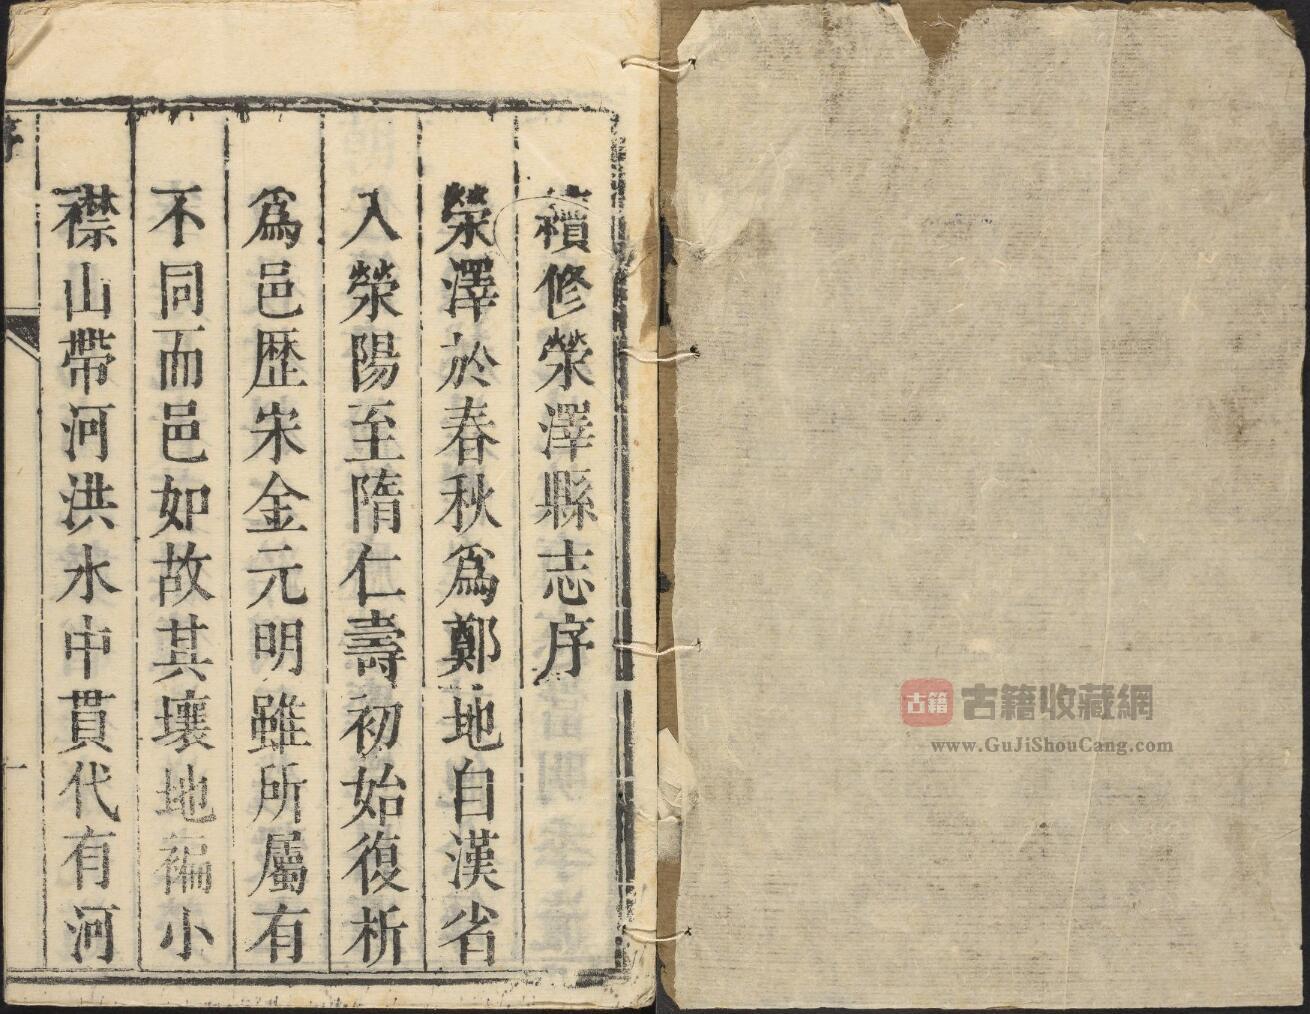 續修滎澤縣志序
滎澤於春秋爲鄭地自漢省
入滎陽至隋仁壽初始復析
爲邑歷宋金元明雖所屬有
不同而邑如故其壤地褊小
襟山帶河洪水中貫代有河
序
一
古籍 古籍收藏網
www.GuJiShouCang.com